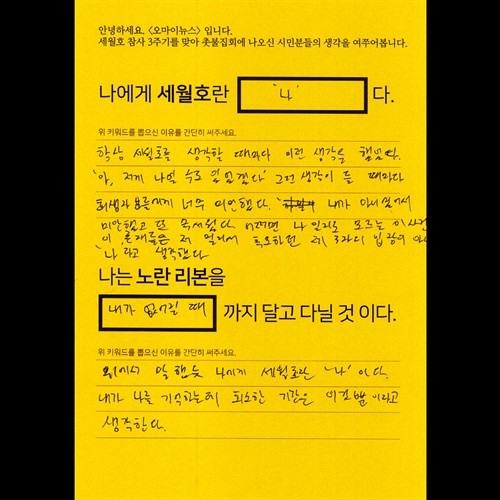 안녕하세요. <오마이뉴스> 입니다.
세월호 참사 3주기를 맞아 촛불집회에 나오신 시민분들의 생각을 여쭈어봅니다.
나에게 세월호란 '나' 다.
위 키워드를 뽑으신 이유를 간단히 써주세요.
항상 세월호를 생각할 때마다 이런 생각을 했었다.
'아, 저게 나일 수도 있었겠다' 그런 생각이 들 때마다
희생자분들에게 너무 미안했다. 내가 아니었어서
미안했고 또 무서웠다. 어쩌면 나 일지도 모르는 이 사건
이
'나'라고 생각했다
나는 노란 리본을
내가 없어질 때 까지 달고 다닐 것 이다.
위 키워드를 뽑으신 이유를 간단히 써주세요.
위에서 말했듯 나에게 세월호란 '나'이다.
내가 나를 기억하는데 필요한 기간은 이것뿐이라고
생각한다.